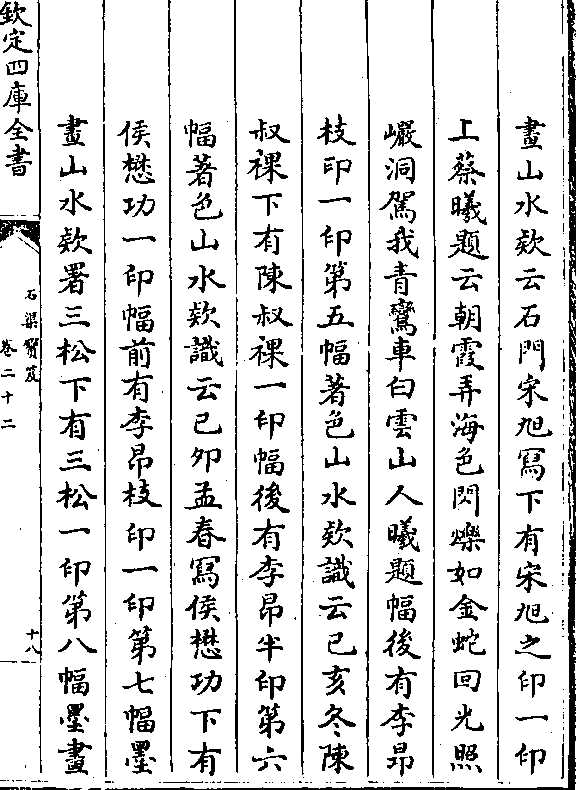 畫山水欵云石門宋旭寫下有宋旭之印一印
上蔡曦題云朝霞弄海色閃爍如金蛇回光照
巗洞駕我青鸞車白雲山人曦題幅後有李昂
枝印一印第五幅著色山水欵識云己亥冬陳
叔祼下有陳叔祼一印幅後有李昂半印第六
幅著色山水欵識云己夘孟春寫侯懋功下有
侯懋功一印幅前有李昂枝印一印第七幅墨
畫山水欵署三松下有三松一印第八幅墨畫
欽定四庫全書
石渠寳笈
卷二十二
十八